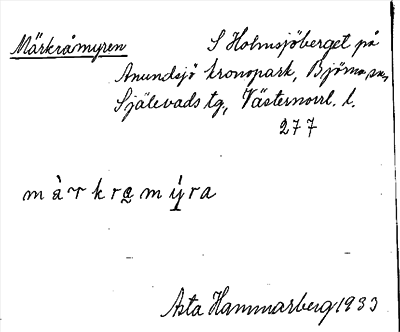 Märkråmyren
S Holmsjöberget på
Anundsjö kronopark, Björna sn,
Själevads tg, Västernorrl. l.
277
m à r k r a m ý r a
Asta Hammarberg 1933